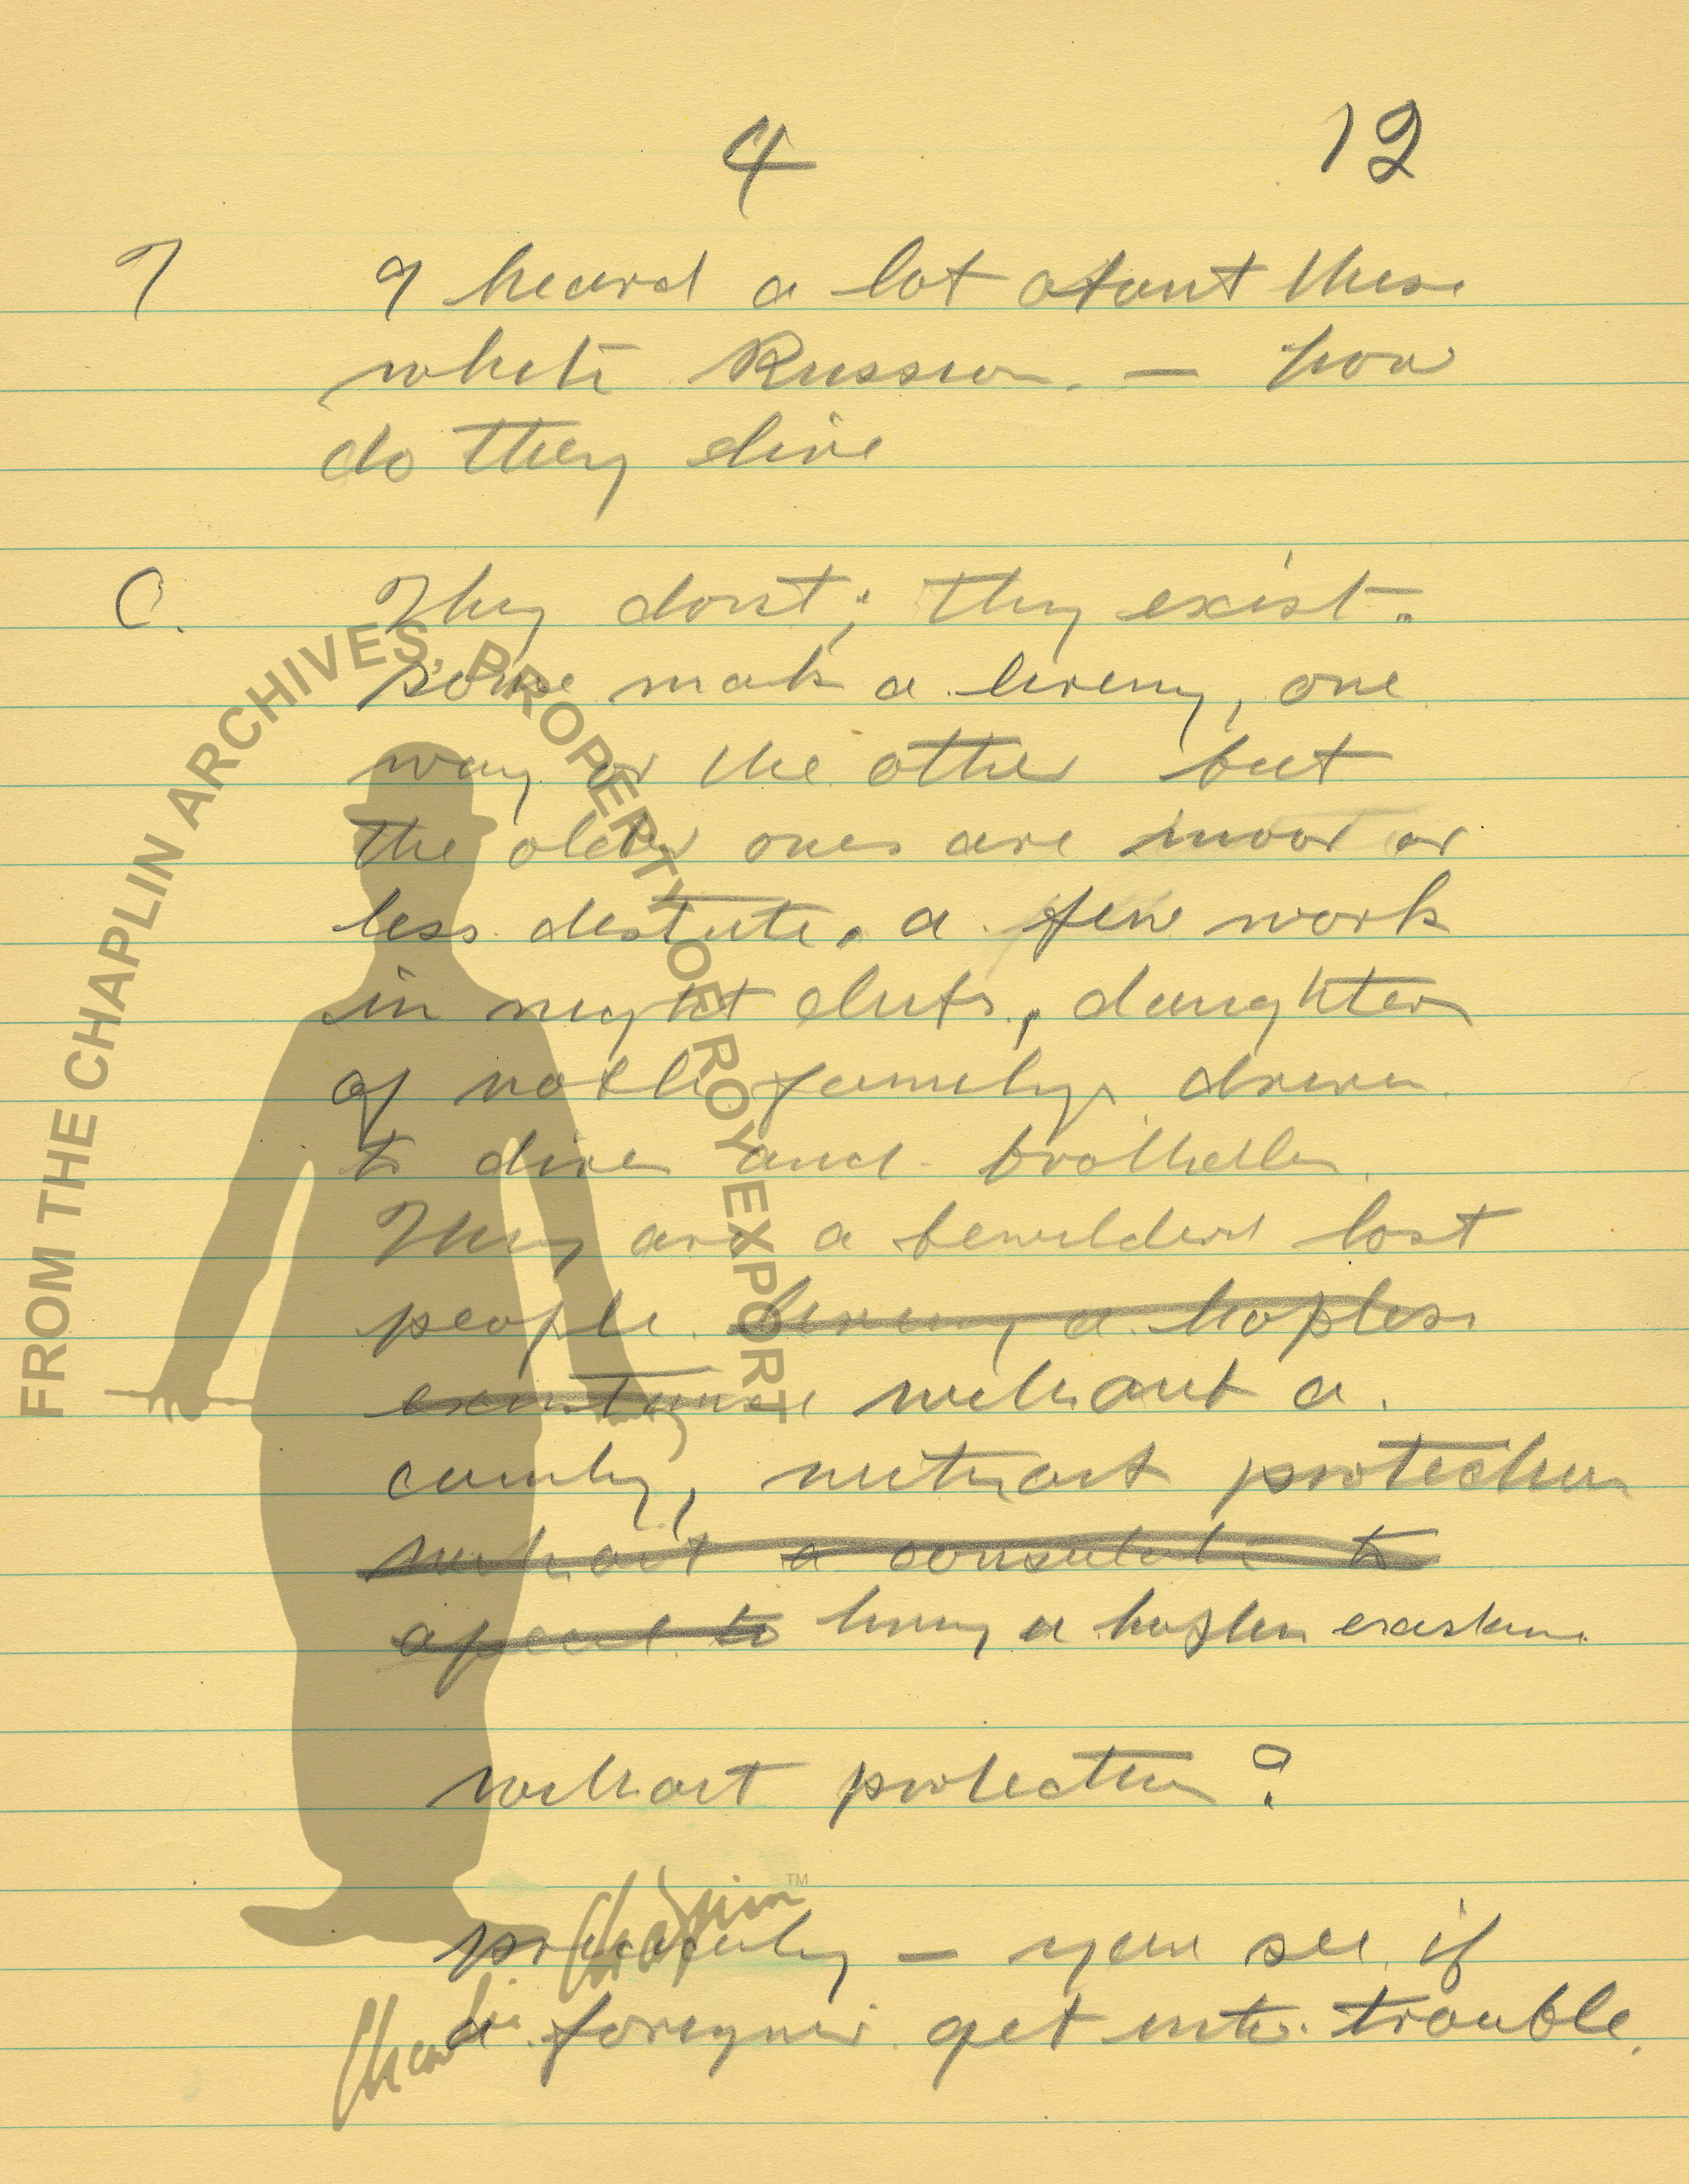 4 12
T I heard a lot about these
white Russian. — how
do they live
C. They dont; they exist.
some make a living, one
way or the other but
the older ones are moor or
less destitute. a few work
in night clubs, daughters
of noble familys driven
to dives and brothells.
They are a bewilderd lost
people. living a hopless
existance without a
country, without protection
without a consulate to
apeal to living a hoples existance
without protection?
precisely — you see if
a foreigner get into trouble.
FROM THE CHAPLIN ARCHIVES, PROPERTY OF ROY EXPORT
Charlie Chaplin TM